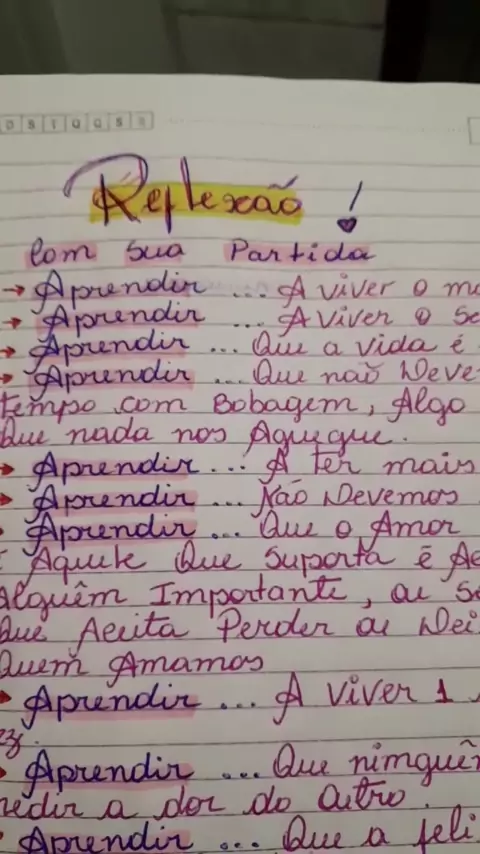 D S T Q Q S S
Reflexão!
Com sua Partida
→ Aprendir ... A viver o
→ Aprendir ... A Viver o
→ Aprendir ... Que a vida é
→ Aprendir ... Que não Deve
tempo com Bobagem, Algo
Que nada nos Agregue.
→ Aprendir ... A ter mais
→ Aprendir ... Não Devemos
→ Aprendir ... Que o Amor
É Aquele Que Suporta é
Alguêm Importante, ou
Que Aceita Perder ou Dei
Quem Amamos
→ Aprendir ... A viver 1
→ Aprendir ... Que nimguêm
medir a dor do Outro.
→ Aprendir ... Que a feli